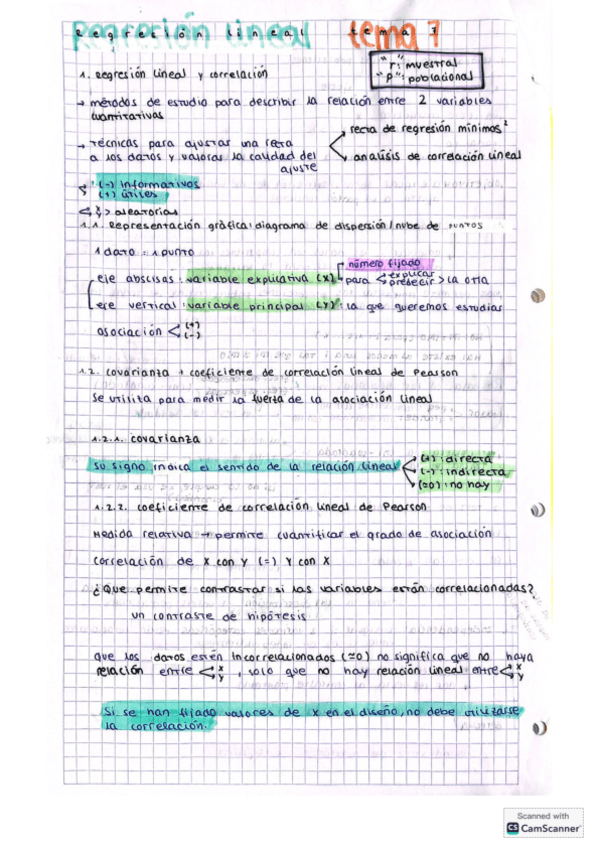 Regresión lineal tema 7
"r": muestral
"p": poblacional
1. Regresión lineal y correlación
→ métodos de estudio para describir la relación entre 2 variables
cuantitativas
→ técnicas para ajustar una recta
a los datos y valorar la calidad del
ajuste
recta de regresión mínimos²
análisis de correlación lineal
(-) informativos
(+) útiles
x y > aleatorias
1.1. Representación gráfica: diagrama de dispersión/nube de puntos
1 dato = 1 punto
número fijado
eje abscisas: variable explicativa (x) para < explicar predecir > la otra
eje vertical: variable principal (y): la que queremos estudiar
asociación < (+) (-)
1.2. covarianza + coeficiente de correlación lineal de Pearson
se utiliza para medir la fuerza de la asociación lineal
1.2.1. covarianza
su signo indica el sentido de la relación lineal
(+): directa
(-): indirecta
(≈0): no hay
1.2.2. coeficiente de correlación lineal de Pearson
Medida relativa → permite cuantificar el grado de asociación
correlación de x con y (=) y con x
¿Que permite contrastar si las variables están correlacionadas?
un contraste de hipótesis
Que los datos estén incorrelacionados (≈0) no significa que no haya
relación entre < x y , solo que no hay relación lineal entre < x y
Si se han fijado valores de x en el diseño, no debe utilizarse
la correlación.
Scanned with
CS CamScanner